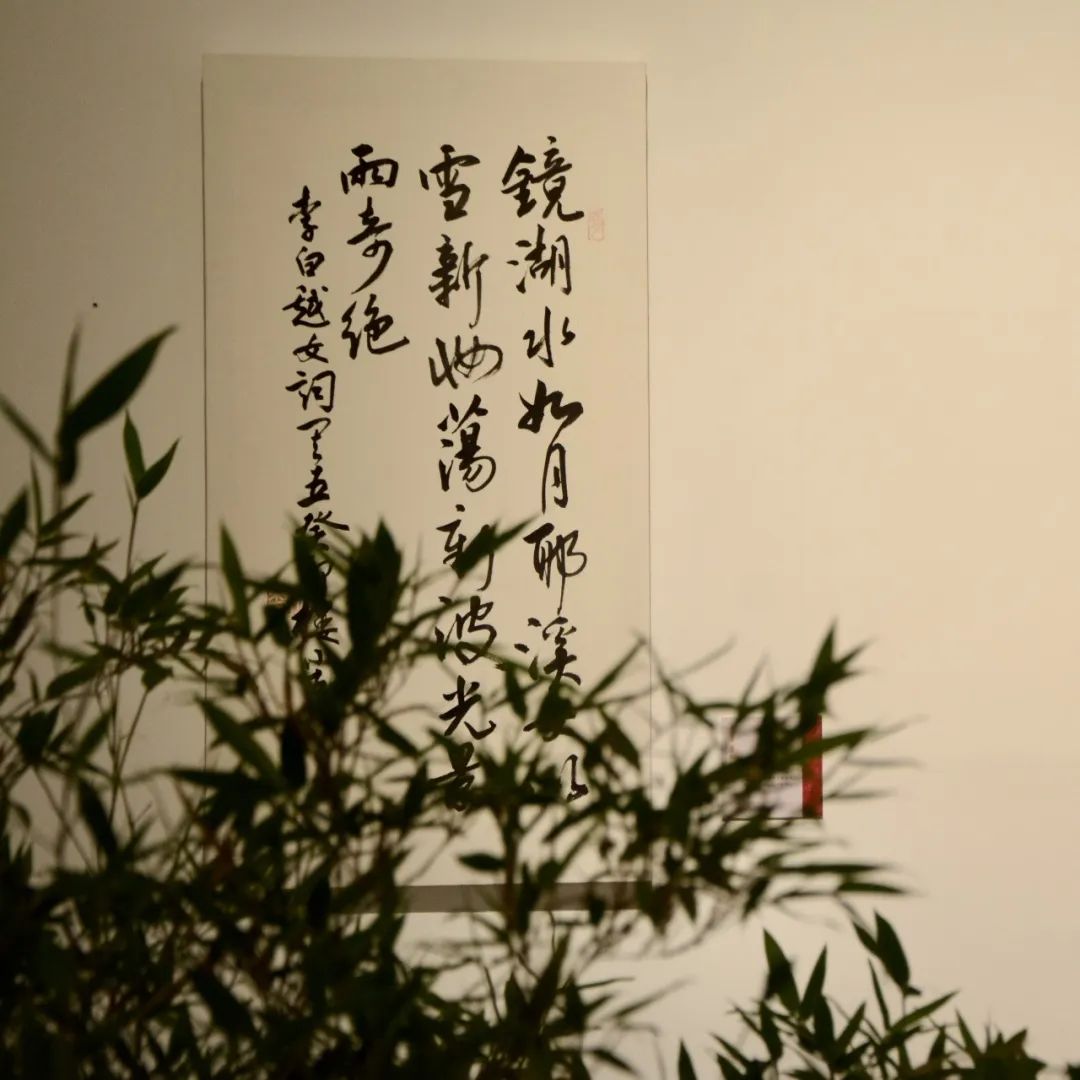 鏡湖水如月耶溪女似
雪新妝蕩新波光景
兩奇絶
李白越女詞 五癸